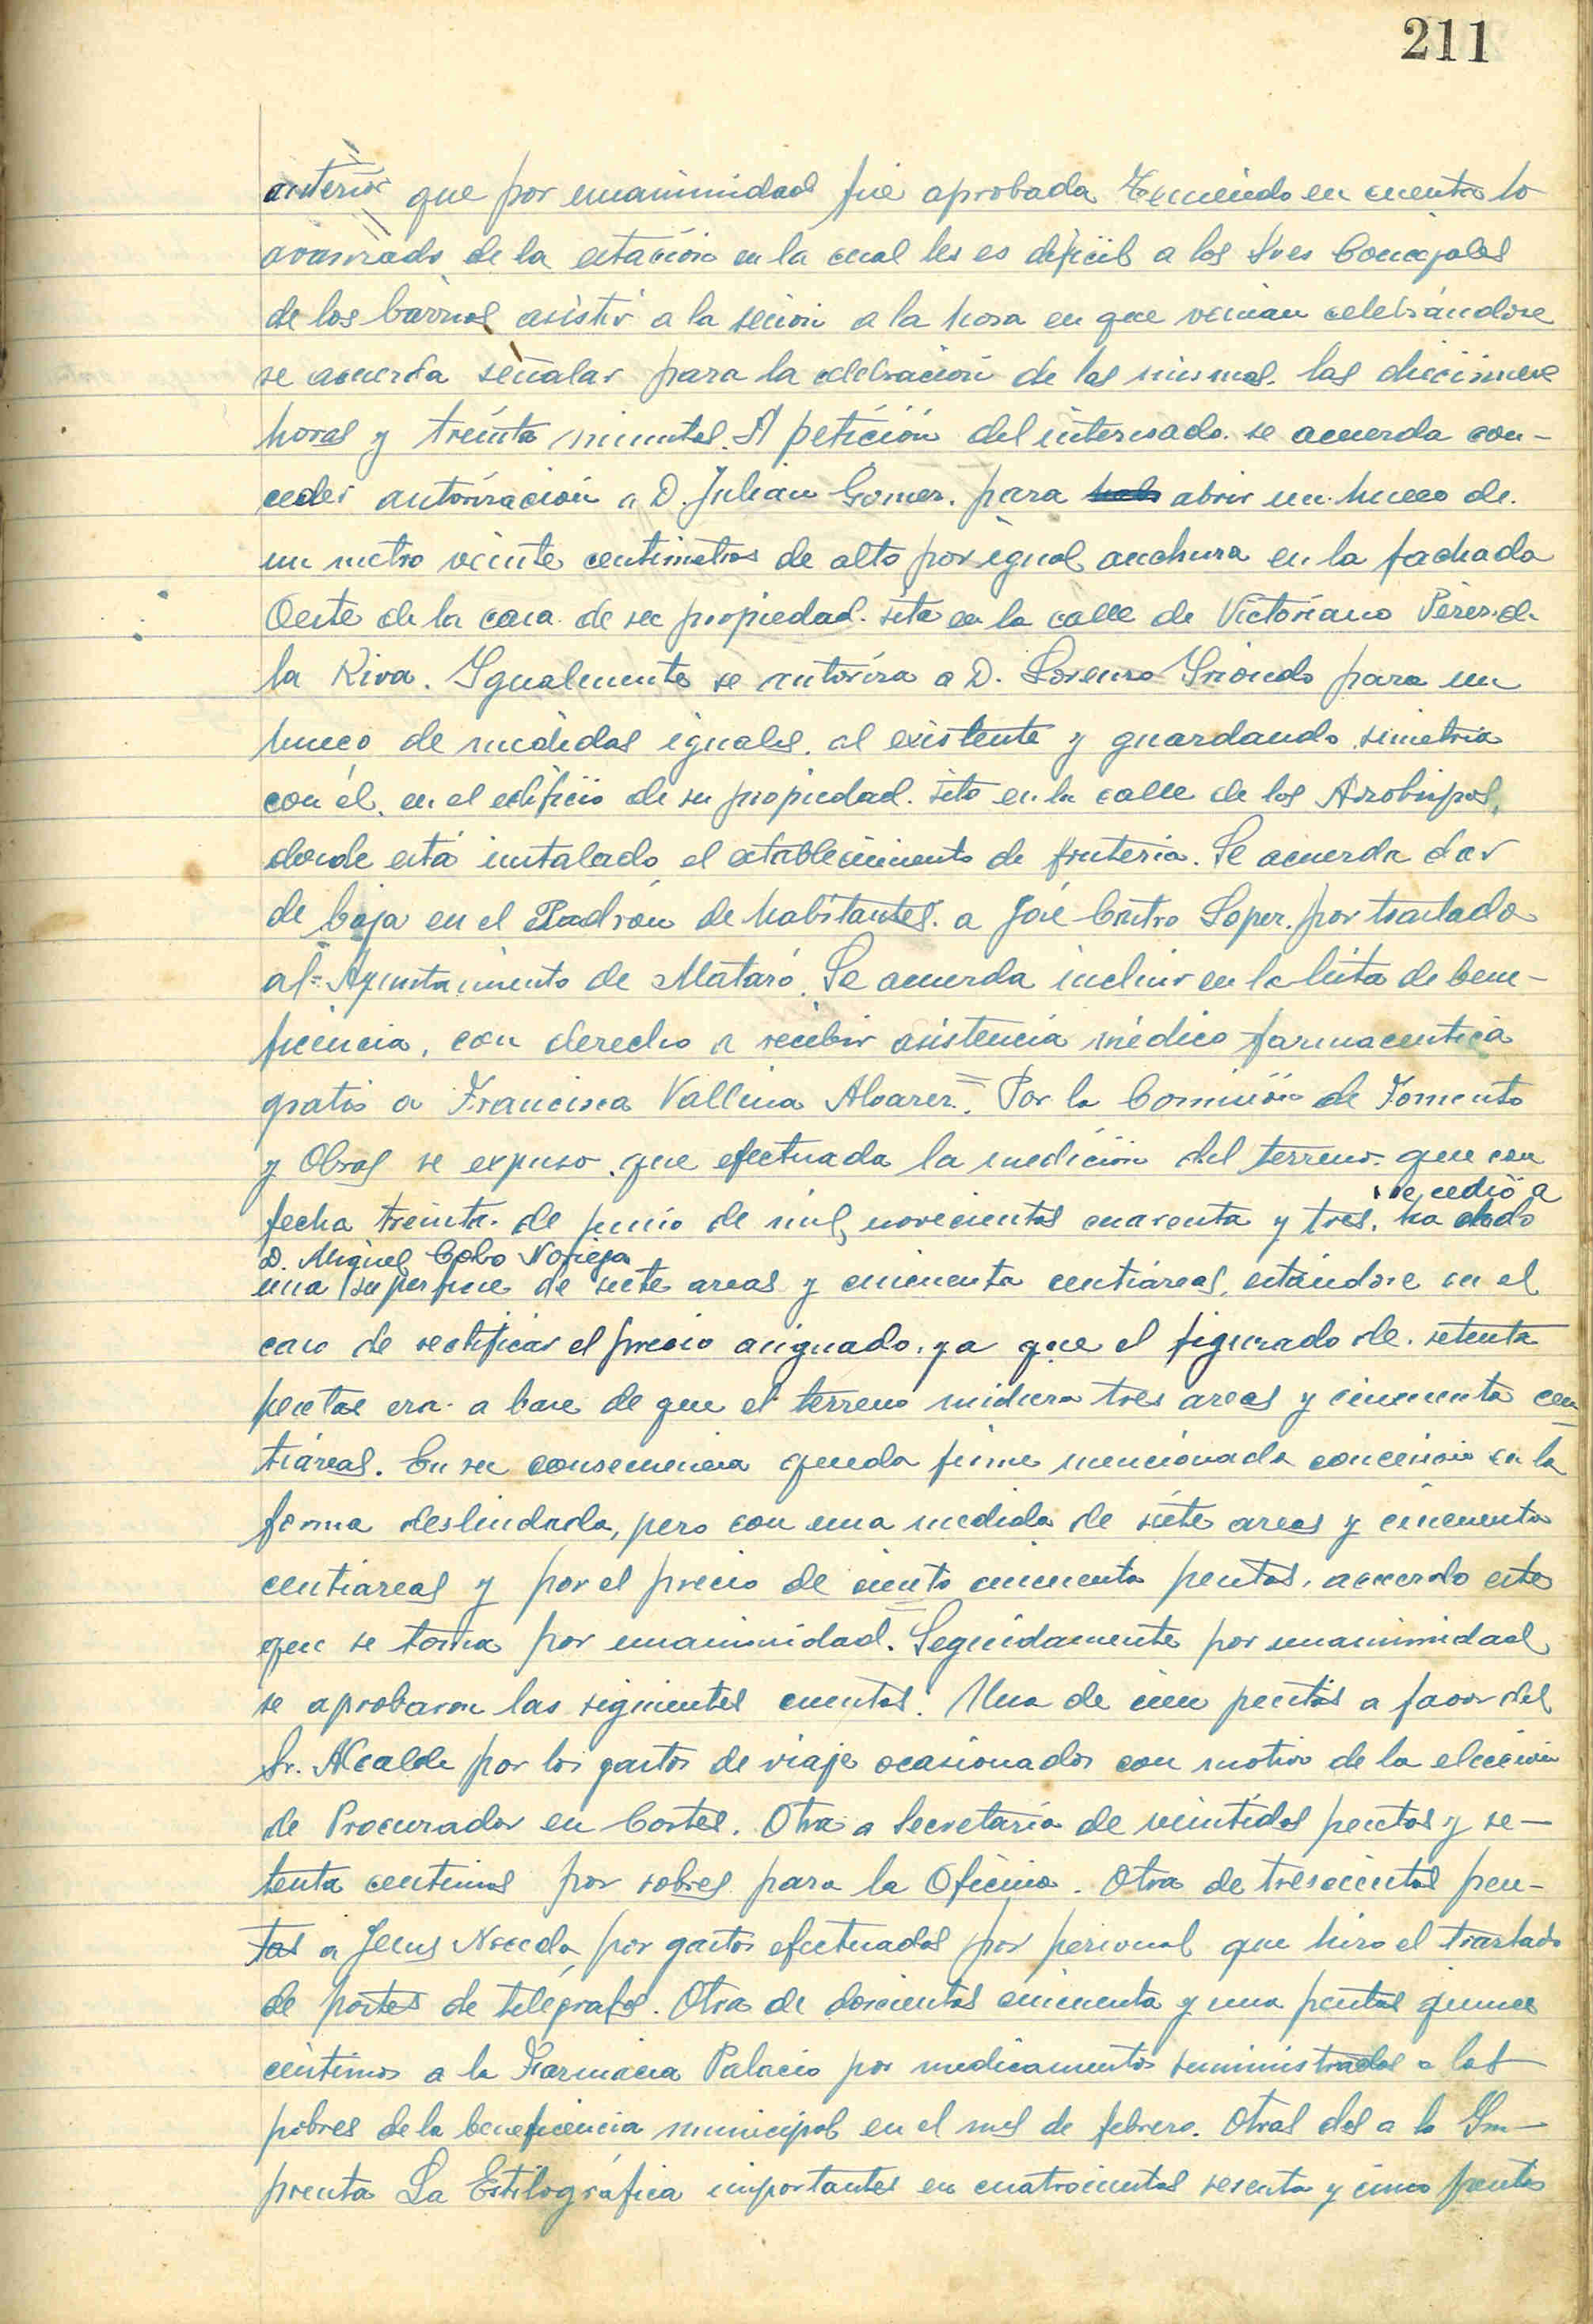 211
anterior que por unanimidad fué aprobada Teniendo en cuenta lo
avanzado de la estación en la cual les es dificil a los Sres Concejales
de los barrios asistir a la sesion a la hora en que venian celebrándose
se acuerda señalar para la celebración de las mismas. las diecinueve
horas y treinta minutos. A petición del interesado. se acuerda con-
ceder autorización a D. Julian Gomez. para abrir un hueco de.
un metro veinte centimetros de alto por igual anchura en la fachada
Oeste de la casa de su propiedad. sita en la calle de Victoriano Pérez de
la Riva. Igualmente se autoriza a D. Lorenzo Iriondo para un
hueco de medidas iguales. al existente y guardando simetria
con él. en el edificio de su propiedad. sito en la calle de los Arzobispos,
donde está instalado el establecimiento de fruteria. Se acuerda dar
de baja en el Padrón de habitantes. a José Castro Lopez. por traslado
al= Ayuntamiento de Mataró. Se acuerda incluir en la lista de bene-
ficencia, con derecho a recibir asistencia médico farmaceutica
gratis a Francisca Vallina Alvarez=. Por la Comisión de Fomento
y Obras se expuso. que efectuada la medición del terreno. que con
se cedió a
fecha treinta. de junio de mil novecientos cuarenta y tres. ha dado
D. Miguel Cobo Noriega
una superficie de siete areas y cincuenta centiáreas, estándose en el
caso de rectificar el precio asignado, ya que el figurado de. setenta
pesetas era. a base de que el terreno midiera tres areas y cincuenta cen
tiáreas. En su consecuencia queda firme mencionada concesión en la
forma deslindada, pero con una medida de siete areas y cincuenta
centiareas y por el precio de ciento cincuenta pesetas, acuerdo este
que se toma por unanimidad. Seguidamente por unanimidad
se aprobaron las siguientes cuentas: Una de cien pesetas a favor del
Sr. Alcalde por los gastos de viaje ocasionados con motivo de la elección
de Procurador en Cortes. Otra a Secretaría de veintidos pesetas y se-
tenta centimos por sobres para la Oficina. Otra de trescientas pese-
tas a Jesus por gastos efectuados por personal que hizo el traslado
de postes de telégrafos. Otra de doscientas cincuenta y una pesetas quince
céntimos a la Farmacia Palacio por medicamentos suministrados a los
pobres de la beneficencia municipal en el mes de febrero. Otras dos a la Im-
prenta La Estilográfica importantes en cuatrocientas sesenta y cinco pesetas